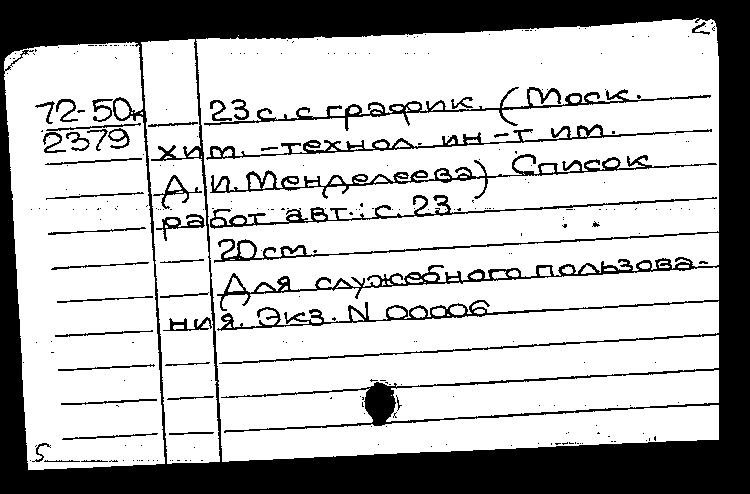 2
72-50к 23 с. с график. (Моск.
2379 хим. -технол. ин-т им.
Д. И. Менделеева). Список
работ авт.: с. 23.
20 см.
Для служебного пользова-
ния. Экз. N 00006
5